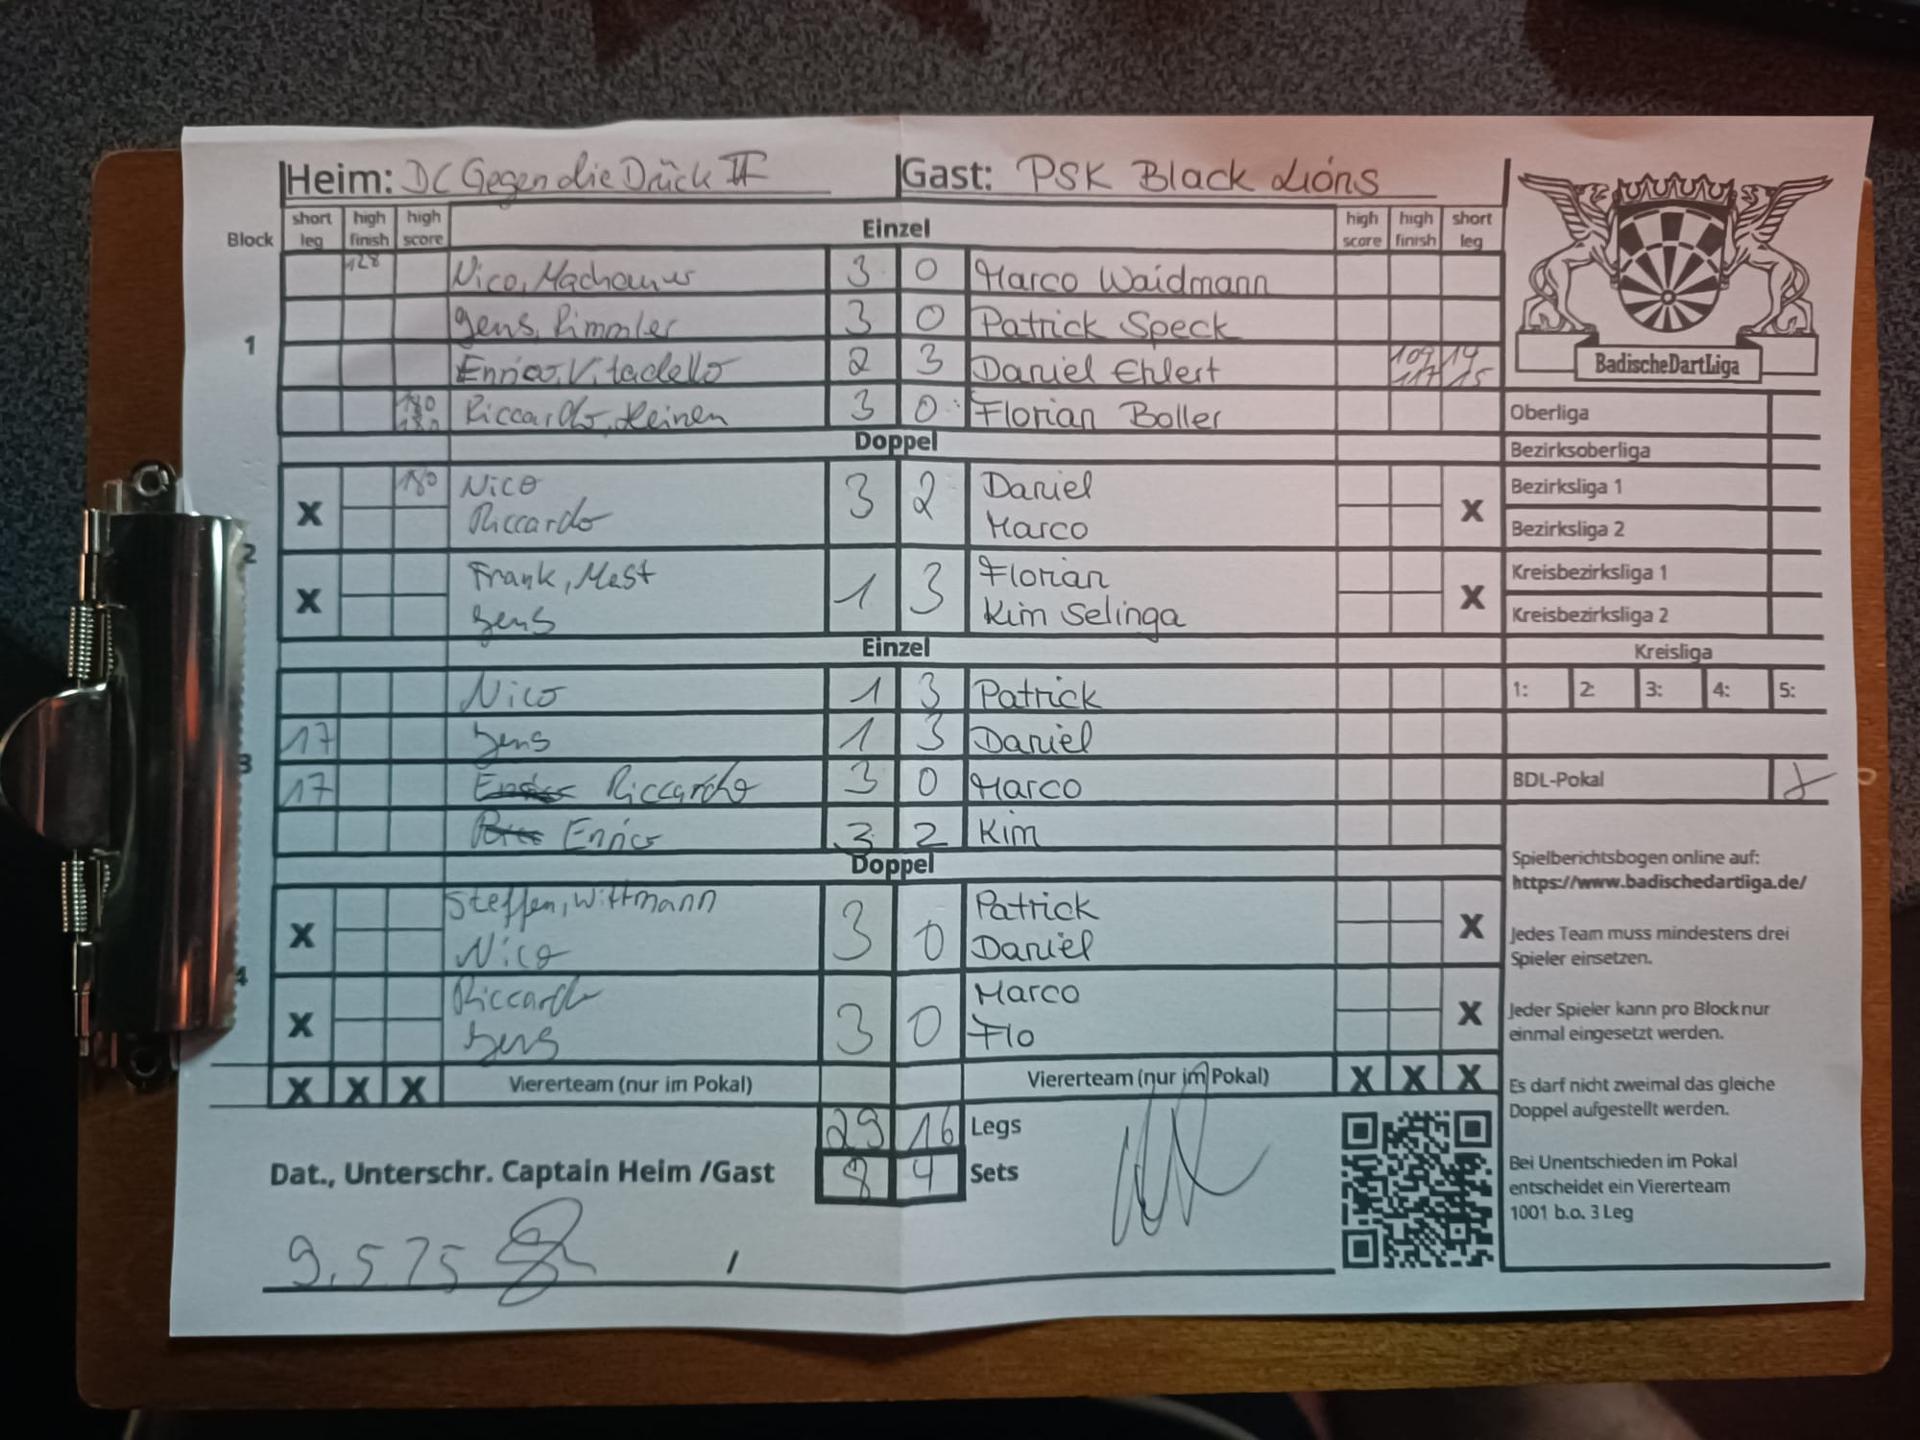 Heim: DC Gegen die Drück II Gast: PSK Black Lions
Block short leg high finish high score Einzel high score high finish short leg
128 Nico, 3 0 Marco Waidmann
1
Jens, Rimmler 3 0 Patrick Speck
Enrico, Vitadello 2 3 Daniel Ehlert 109 117 14 15
180 180 Riccardo, Heinen 3 0 Florian Boller
Doppel
X 180 Nico 3 2 Daniel X
Riccardo Marco
2
X Frank, Mast 1 3 Florian X
Jens Kim Selinga
Einzel
Nico 1 3 Patrick
17 Jens 1 3 Daniel
3
17 Riccardo 3 0 Marco
Enrico 3 2 Kim
Doppel
X Steffen, Wittmann 3 0 Patrick X
Nico Daniel
4
X Riccardo 3 0 Marco X
Jens Flo
X X X Viererteam (nur im Pokal) Viererteam (nur im Pokal) X X X
29 16 Legs
Dat., Unterschr. Captain Heim /Gast 8 4 Sets
9.5.25 /
BadischeDartLiga
Oberliga
Bezirksoberliga
Bezirksliga 1
Bezirksliga 2
Kreisbezirksliga 1
Kreisbezirksliga 2
Kreisliga
1: 2: 3: 4: 5:
BDL-Pokal
Spielberichtsbogen online auf:
https://www.badischedartliga.de/
Jedes Team muss mindestens drei
Spieler einsetzen.
Jeder Spieler kann pro Block nur
einmal eingesetzt werden.
Es darf nicht zweimal das gleiche
Doppel aufgestellt werden.
Bei Unentschieden im Pokal
entscheidet ein Viererteam
1001 b.o. 3 Leg